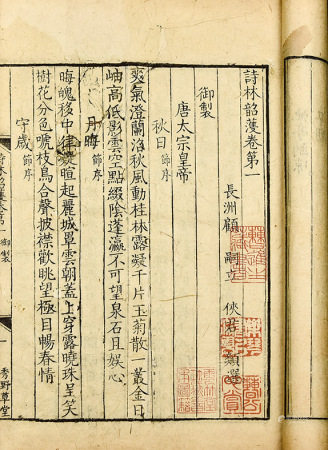 詩林韶濩卷第一
長洲顧 嗣立 俠君 類選
御製
唐太宗皇帝
秋日 節序
爽氣澄蘭沼秋風動桂林露凝千片玉菊散一叢金日
岫高低影雲空點綴陰蓬瀛不可望泉石且娛心
月晦 節序
晦魄移中律暄起麗城罩雲朝蓋上穿露曉珠呈笑
樹花分色啼枝鳥合聲披襟歡眺望極目暢春情
守歲 節序
秀野草堂